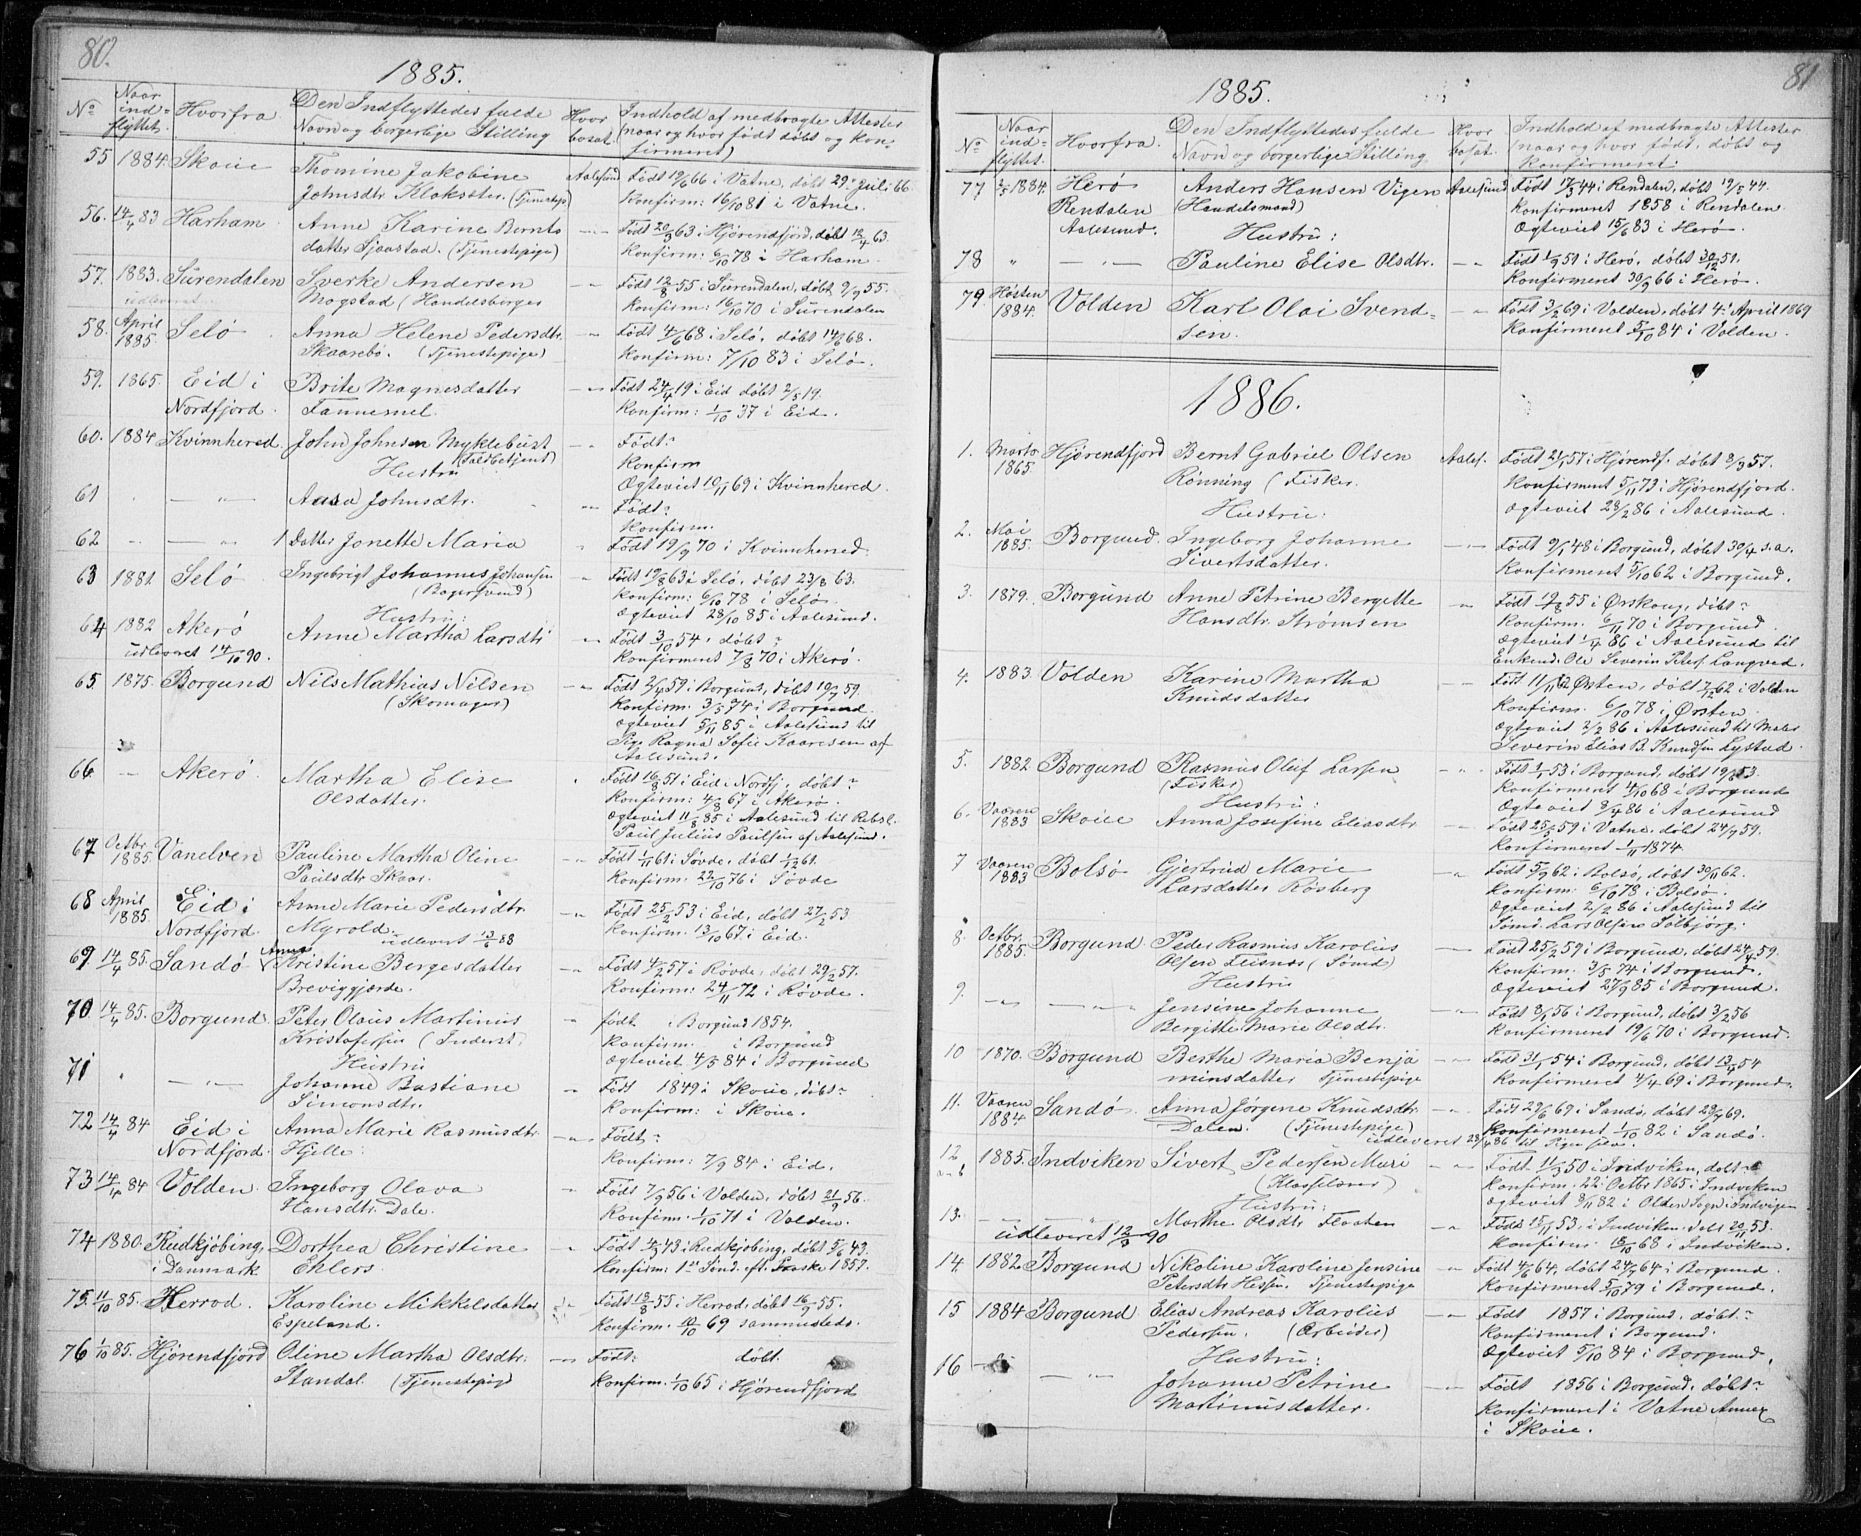 80.
1885.
No Naar ind= flyttet. Hvorfra Den Indflyttedes fulde Navn og borgerlige Stilling Hvor bosat. Indhold af medbragte Attester (naar og hvor født døbt og kon= firmeret)
55 1884. Skoue Thomine Jakobine Aalesund Født 19/6 66 i Vatne, døbt 29. Juli 66.
Johnsdtr Kloksæter. (Tjenestep) Konfirm: 16/10 81 i Vatne.
56. 14/4 83 Harham Anne Karine Bernts Født 20/3 63 i Hjørendfjord, døbt 12/4 63.
datter Sjaastad. (Tjenestepige) Konfirm: 6/10 78 i Harham.
57. 1883. Surendalen Sverke Andersen Født 12/8 55 i Surendalen, døbt 9/9 55.
udleveret Mogstad (Handelsborger Konfirm: 16/10 70 i Surendalen
58. April 1885. Selø Anna Helene Pedersdtr Født 4/6 68 i Selø, døbt 14/6 68.
Skaarebø. (Tjenestepige) Konfirm: 7/10 83 i Selø.
59. 1865. Eid i Brite Magnesdatter Født 24/4 19 i Eid døbt 2/5 19.
Nordfjord. Tannemel. Konfirm: 1/10 37 i Eid.
60. 1884 Kvinnhered John Johnsen Myklebust Født?
(Toldbetjent) Konfirm
Hustru Ægteviet 10/11 69 i Kvinnhered.
61 — " — Aasa Johnsdtr. Født?
Konfirm.
62 — " — 1 Datter Jonette Maria Født 19/9 70 i Kvinnhered.
63 1881. Selø Ingebrigt Johannes Johansen Født 19/8 63 i Selø, døbt 23/8 63.
(Bagersvend) Konfirm: 6/10 78 i Selø.
Hustru: Ægteviet 28/10 85 i Aalesund.
64 1882 Akerø Anne Martha Larsdtr Født 3/10 54, døbt?
udleveret 14/10 90. Konfirmeret 7/8 70 i Akerø.
65. 1875. Borgund Nils Mathias Nilsen Født 2/4 59 i Borgund, døbt 10/7 59.
(Skomager) Konfirm. 3/5 74 i Borgund
Ægteviet 5/11 85 i Aalesund til
Pige Ragna Sofie Kaaresen af
Aalesund.
66 — Akerø. Martha Elise Født 16/8 51 i Eid i Nordfj, døbt?
Olsdatter. Konfirm: 4/8 67 i Akerø.
Ægteviet 11/8 85 i Aalesund til Rebsl.
Paul Julius Paulsen af Aalesund.
67 Octbr 1885 Vanelven Pauline Martha Oline Født 1/11 61 i Søvde, døbt 1/12 61.
Paulsdtr Skaar. Konfirm. 22/10 76 i Søvde
68 April 1885. Eid i Anne Marie Pedersdtr Født 25/2 53 i Eid, døbt 27/2 53
Nordfjord. Myrold. udlevert 13/6 88 Konfirm: 13/10 67 i Eid.
69 14/4 85. Sandø Anne Kristine Bergesdatter Født 4/2 57 i Røvde, døbt 29/2 57.
Breviggjærde. Konfirm: 24/11 72 i Røvde.
70. 14/4 85. Borgund. Peter Olaus Martinus født i Borgund 1854.
Kristofersen (Inderst) Konfirm. i Borgund
Hustru Ægteviet 4/5 84 i Borgund
71 — " — Johanne Bastiane Født 1849 i Skoue, døbt?
Simonsdtr. Konfirm: i Skoue.
72 14/4 84 Eid i Anna Marie Rasmusdtr Født?
Nordfjord. Hjelle. Konfirm: 7/9 84 i Eid.
73 14/4 84 Volden. Ingeborg Olava Født 7/9 56 i Volden, døbt 21/9 56.
Hansdtr. Dale. Konfirm. 1/10 71 i Volden.
74 1880. Rudkjøbing, Dorthea Christine Født 4/3 43 i Rudkjøbing, døbt 5/6 43.
i Danmark Ehlers. Konfirm: 1ste Sønd. eft. Paaske 1857.
75. 11/10 85. Herrød. Karoline Mikkelsdatter Født 18/8 55 i Herrød, døbt 16/9 55.
Espeland. Konfirm. 10/10 69 sammesteds.
76 1/10 85. Hjørendfjord Oline Martha Olsdtr. Født: døbt.
Standal. (Tjenestepig) Konfirm. 1/10 65 i Hjørendfjord
81
1885.
No Naar ind= flyttet. Hvorfra. Den Indflyttedes fulde Navn og borgerlige Stilling Hvor bosat. Indhold af medbragte Attester (naar og hvor født, døbt og konfirmeret.
77 1884. Herø Anders Hansen Vigen Aalesund Født 17/3 44 i Rendalen, døbt 19/5 44.
Rendalen (Handelsmand) Konfirmeret 1858 i Rendalen.
Aalesund. Hustru: Ægteviet 15/6 83 i Herø.
78 " — " — Pauline Elise Olsdtr. Født 1/9 51 i Herø, døbt 30/12 51.
Konfirmeret 30/9 66 i Herø.
79 Høsten 1884. Volden Karl Olai Svend= Født 3/2 69 i Volden, døbt 4. April 1869
sen. Konfirmeret 5/10 84 i Volden.
1886.
1. Marts 1865. Hjørendfjord Bernt Gabriel Olsen Aales. Født 2/1 57 i Hjørendf. døbt 8/3 57.
Rønning (Fisker. Konfirmeret 5/11 73 i Hjørendfjord.
Hustru Ægteviet 28/2 86 i Aalesund.
2. Mai 1885. Borgund. Ingeborg Johanne Født 9/1 48 i Borgund, døbt 30/4 s.a.
Sivertsdatter. Konfirmeret 5/10 62 i Borgund.
3. 1879. Borgund Anne Petrine Bergitte Født 19/8 55 i Ørskoug, døbt?
Hansdtr. Strømsen Konfirm. 6/11 70 i Borgund.
Ægteviet 1/4 86 i Aalesund til
Enkemd. Ole Severin Peters. Langved.
4. 1883. Volden Karine Martha Født 11/11 62 Ørsten, døbt 7/12 62 i Volden
Knudsdatter Konfirm. 6/10 78 i Ørsten
Ægteviet 2/2 86 i Aalesund til Maler
Severin Elias B. Knudsen Lystad.
5. 1882 Borgund Rasmus Oluf Larsen Født 1/1 53 i Borgund, døbt 19/6 53.
(Fisker) Konfirmeret 4/10 68 i Borgund
Hustru: Ægteviet 8/4 86 i Aalesund
6. Vaaren 1883 Skoue Anna Josefine Eliasdtr Født 25/2 59 i Vatne, døbt 24/4 59.
Konfirmeret 1/11 1874.
7 Vaaren 1883 Bolsø Gjertrud Marie Født 5/9 62 i Bolsø, døbt 30/11 62.
Larsdatter Røsberg Konfirm. 6/10 78 i Bolsø.
Ægteviet 2/2 86 i Aalesund til
Sømd. Lars Olsen Solbjørg.
8. Octbr. 1885. Borgund Peder Rasmus Karolius Født 25/2 59 i Borgund, døbt 24/4 59.
Olsen Flisnes (Sømd) Konfirm. 3/5 74 i Borgund.
Hustru Ægteviet 27/9 85 i Borgund.
9. — " — Jensine Johanne Født 8/1 56 i Borgund, døbt 3/2 56
Bergitte Marie Olsdtr. Konfirmeret 19/6 70 i Borgund.
10 1870. Borgund Berthe Maria Benja Født 31/1 54 i Borgund, døbt 13/4 54
minsdatter Tjenestepige Konfirmeret 4/4 69 i Borgund.
11. Vaaren 1884. Sandø. Anna Jørgene Knudsdtr Født 29/6 69 i Sandø, døbt 29/7 69.
Dalen. (Tjenestepige) Konfirmeret 1/10 82 i Sandø.
udleveret 23/4 86 til Pigen selv.
12 1885. Indviken Sivert Pedersen Muri Født 11/3 50 i Indviken, døbt
(Klasselærer) Konfirm. 22 Octbr 1865 i Indviken
Hustru: Ægteviet 8/11 82 i Olden Sogn i Indvigen
13. — " — Marthe Olsdtr Floaten Født 15/11 53, i Indviken, døbt 20/11 53.
udleveret 12/3 90 Konfirm. 18/10 68 i Indviken.
14. 1882 Borgund Nikoline Karoline Jensine Født 4/6 64, døbt 24/7 64 i Borgund.
Petersdtr Hessen. Tjenestepige Konfirmeret 5/10 79 i Borgund.
15 1884 Borgund Elias Andreas Karolius Født 1857 i Borgund, døbt?
Pedersen. (Arbeider) Konfirmeret i Borgund.
Hustru: Ægteviet 5/10 84 i Borgund.
16 — " — Johanne Petrine Født 1856 i Borgund, døbt?
Martinusdatter. Konfirmeret i Vatne Annex
i Skoue.